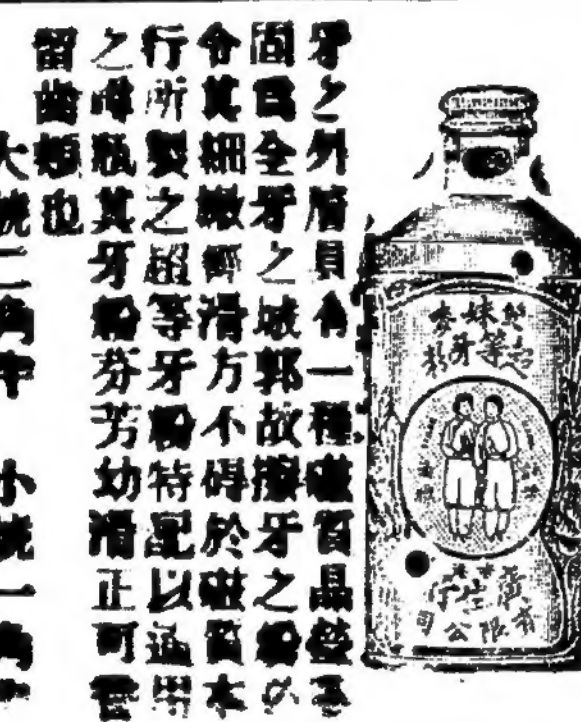 牙之外層具有一種磁質晶瑩
固為全牙之城郭故擦牙之粉必
令其細嫩滑方不碍於磁質本
行所製之超等牙粉特配以適用
之瓶其牙粉芬芳幼滑正可香
留齒頰也
大號二角半 小號一角
雙妹嚜
超等牙粉
廣生行
有限公司